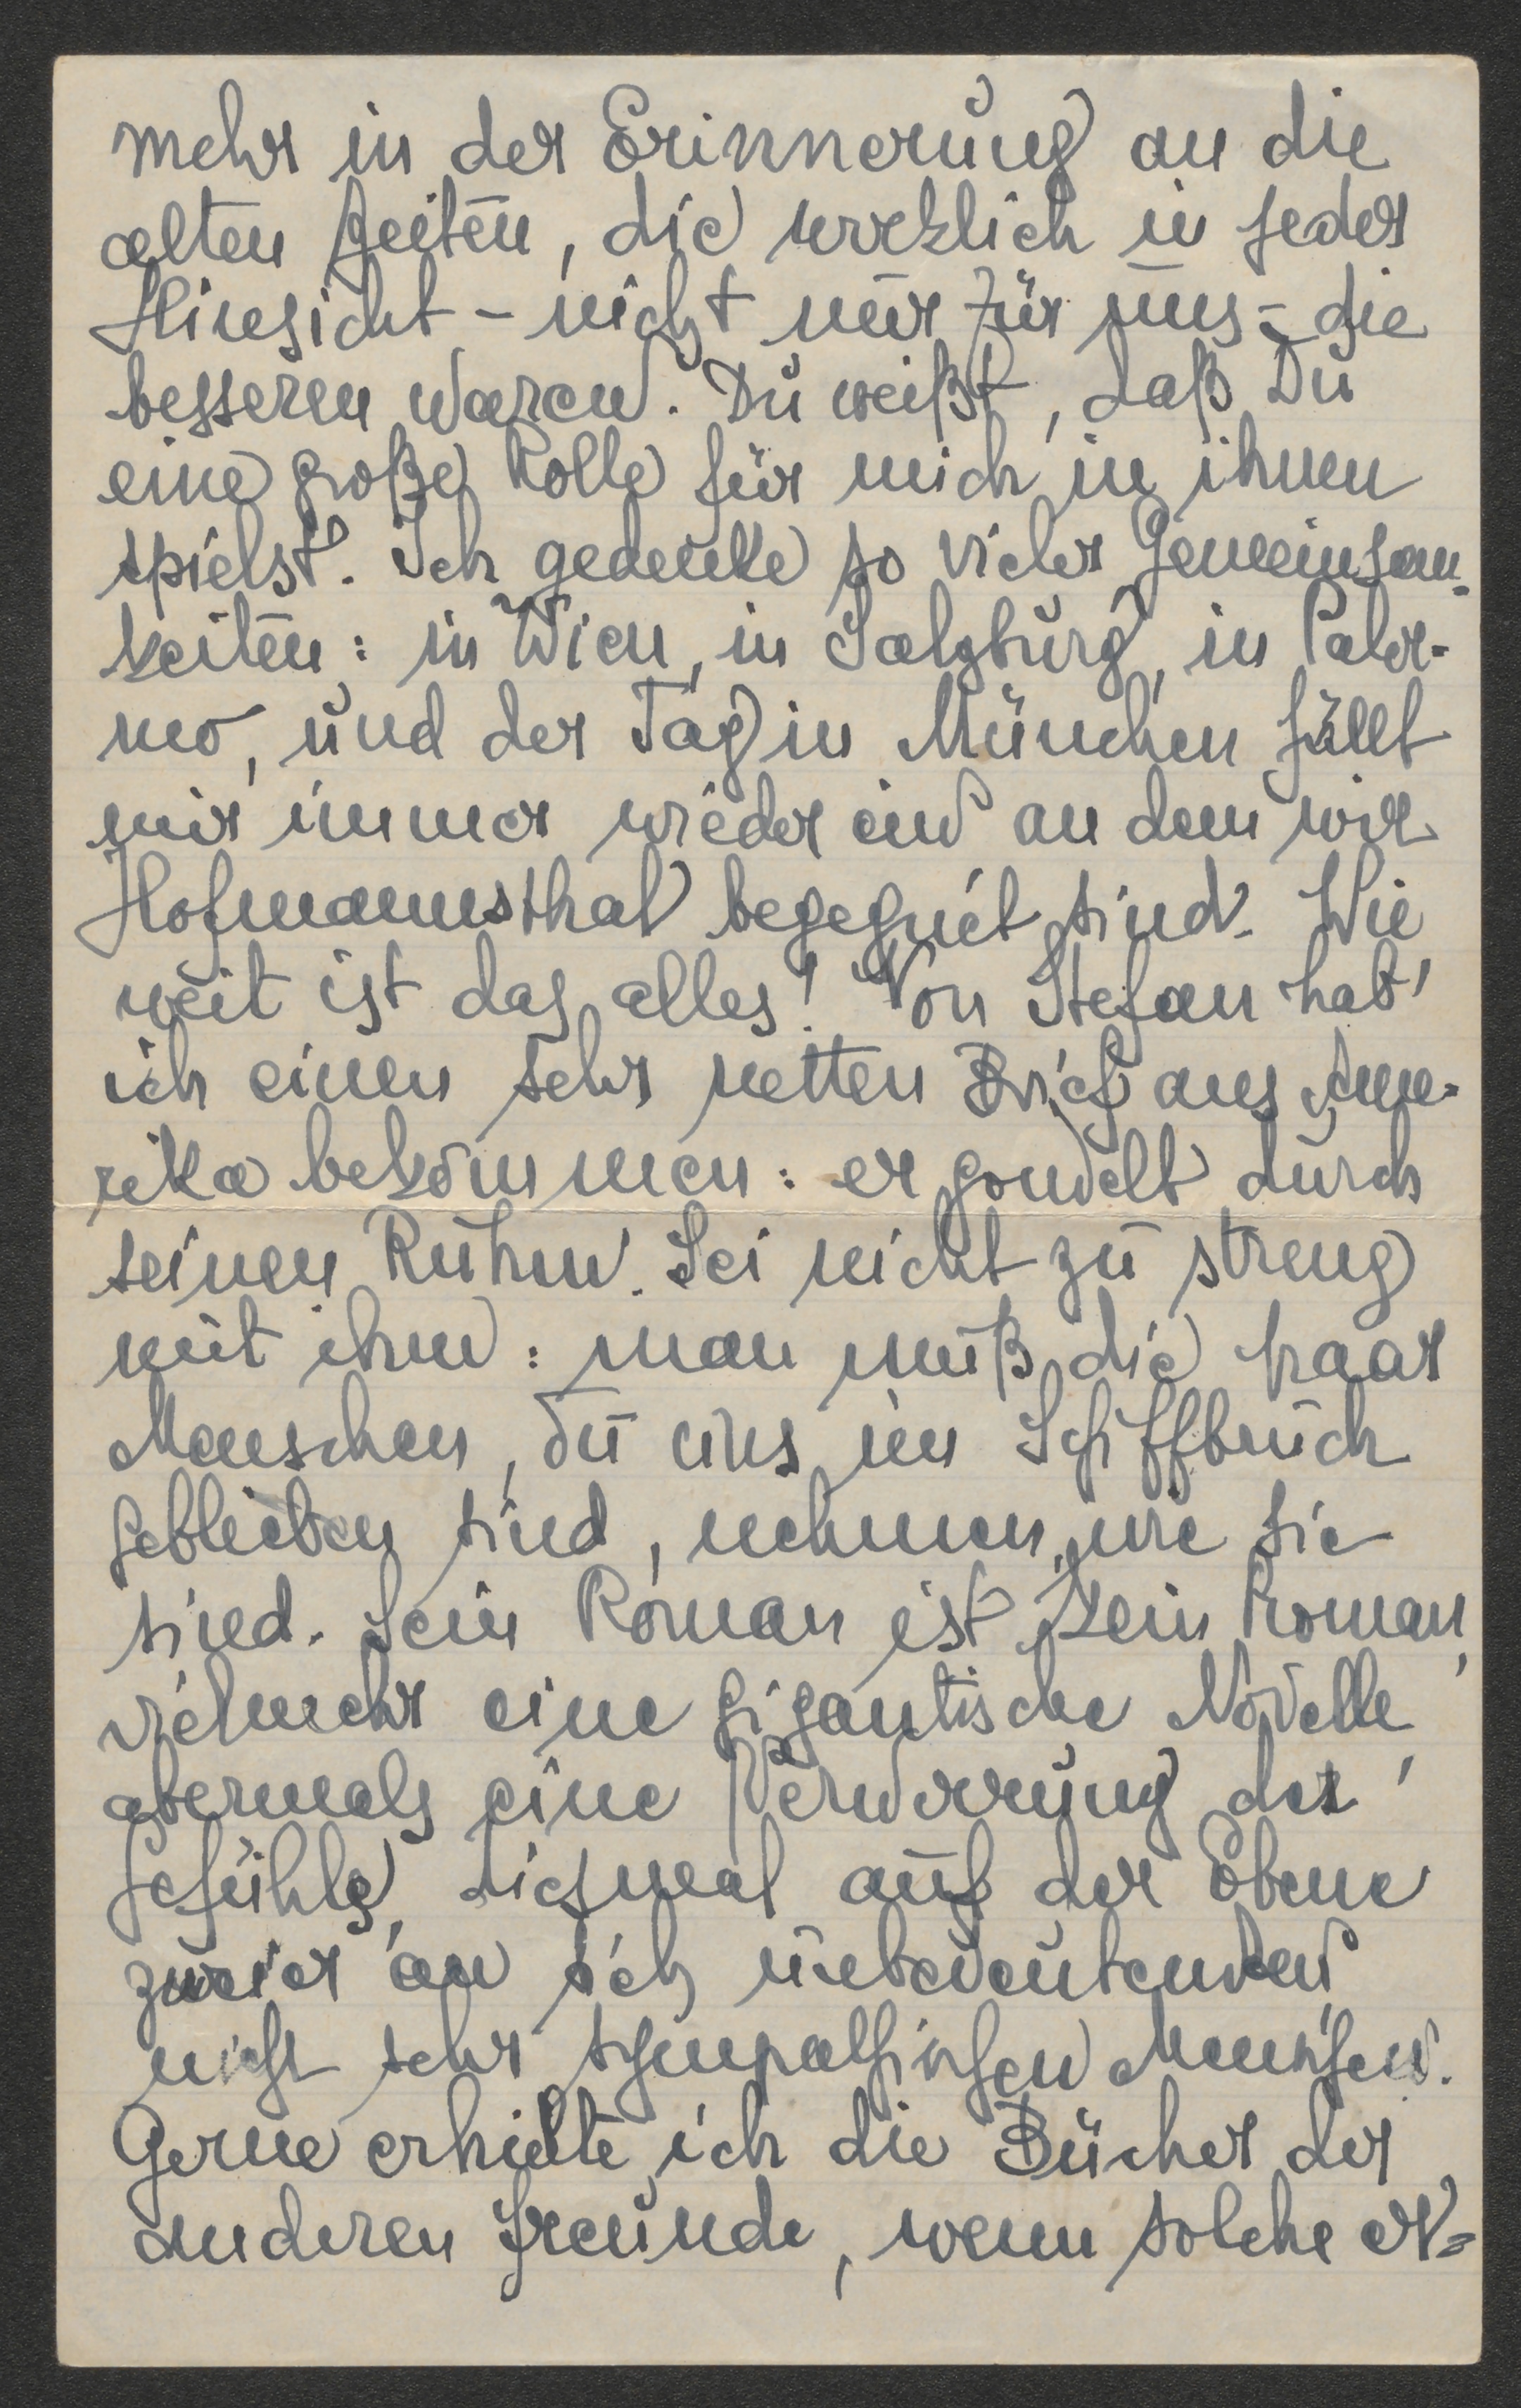 mehr in der Erinnerung an die
alten Zeiten, die wirklich in jeder
Hinsicht – nicht nur für uns – die
besseren waren. Du weißt, daß Du
eine große Rolle für mich in ihnen
spielst. Ich gedenke so vieler Gemeinsam-
keiten: in Wien, in Salzburg, in Paler-
mo, und der Tag in München fällt
mir immer wieder ein an dem wir
Hofmannsthal begegnet sind. Wie
weit ist das alles! Von Stefan hab'
ich einen sehr netten Brief aus Ame-
rika bekommen: er gondelt durch
seinen Ruhm. Sei nicht zu streng
mit ihm: man muß die paar
Menschen, die uns im Schiffbruch
geblieben sind, nehmen, wie sie
sind. Sein Roman ist kein Roman,
vielmehr eine gigantische Novelle,
abermals eine Verwirrung der
Gefühle, diesmal auf der Ebene
zweier an sich unbedeutenden
nicht sehr sympathischen Menschen.
Gerne erhielte ich die Bücher der
anderen Freunde, wenn solche er-